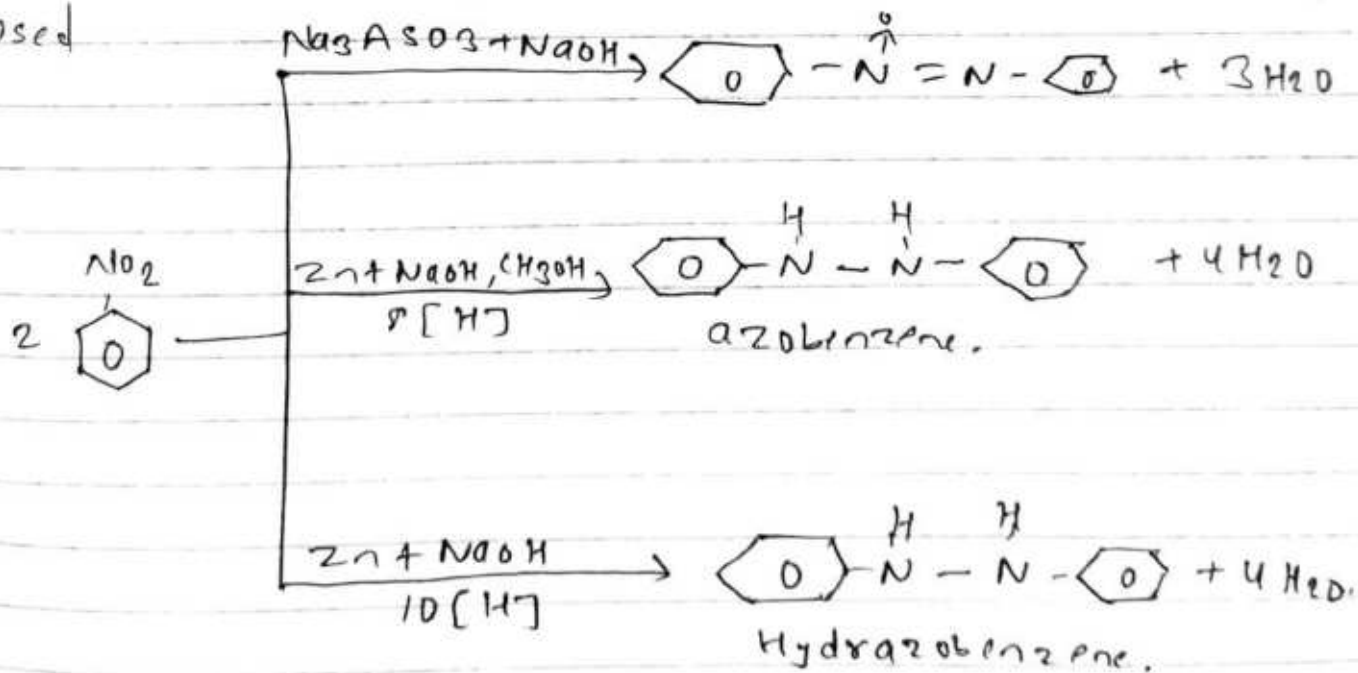 osed
Na3ASO3+NaOH
O
-N=N-
+ 3H2O
NO2
2
H H
Zn+NaOH, CH3OH
-N-N-
+ 4H2O
8[H]
azobenzene.
H H
Zn+NaOH
-N-N-
+ 4H2O.
10[H]
Hydrazobenzene.